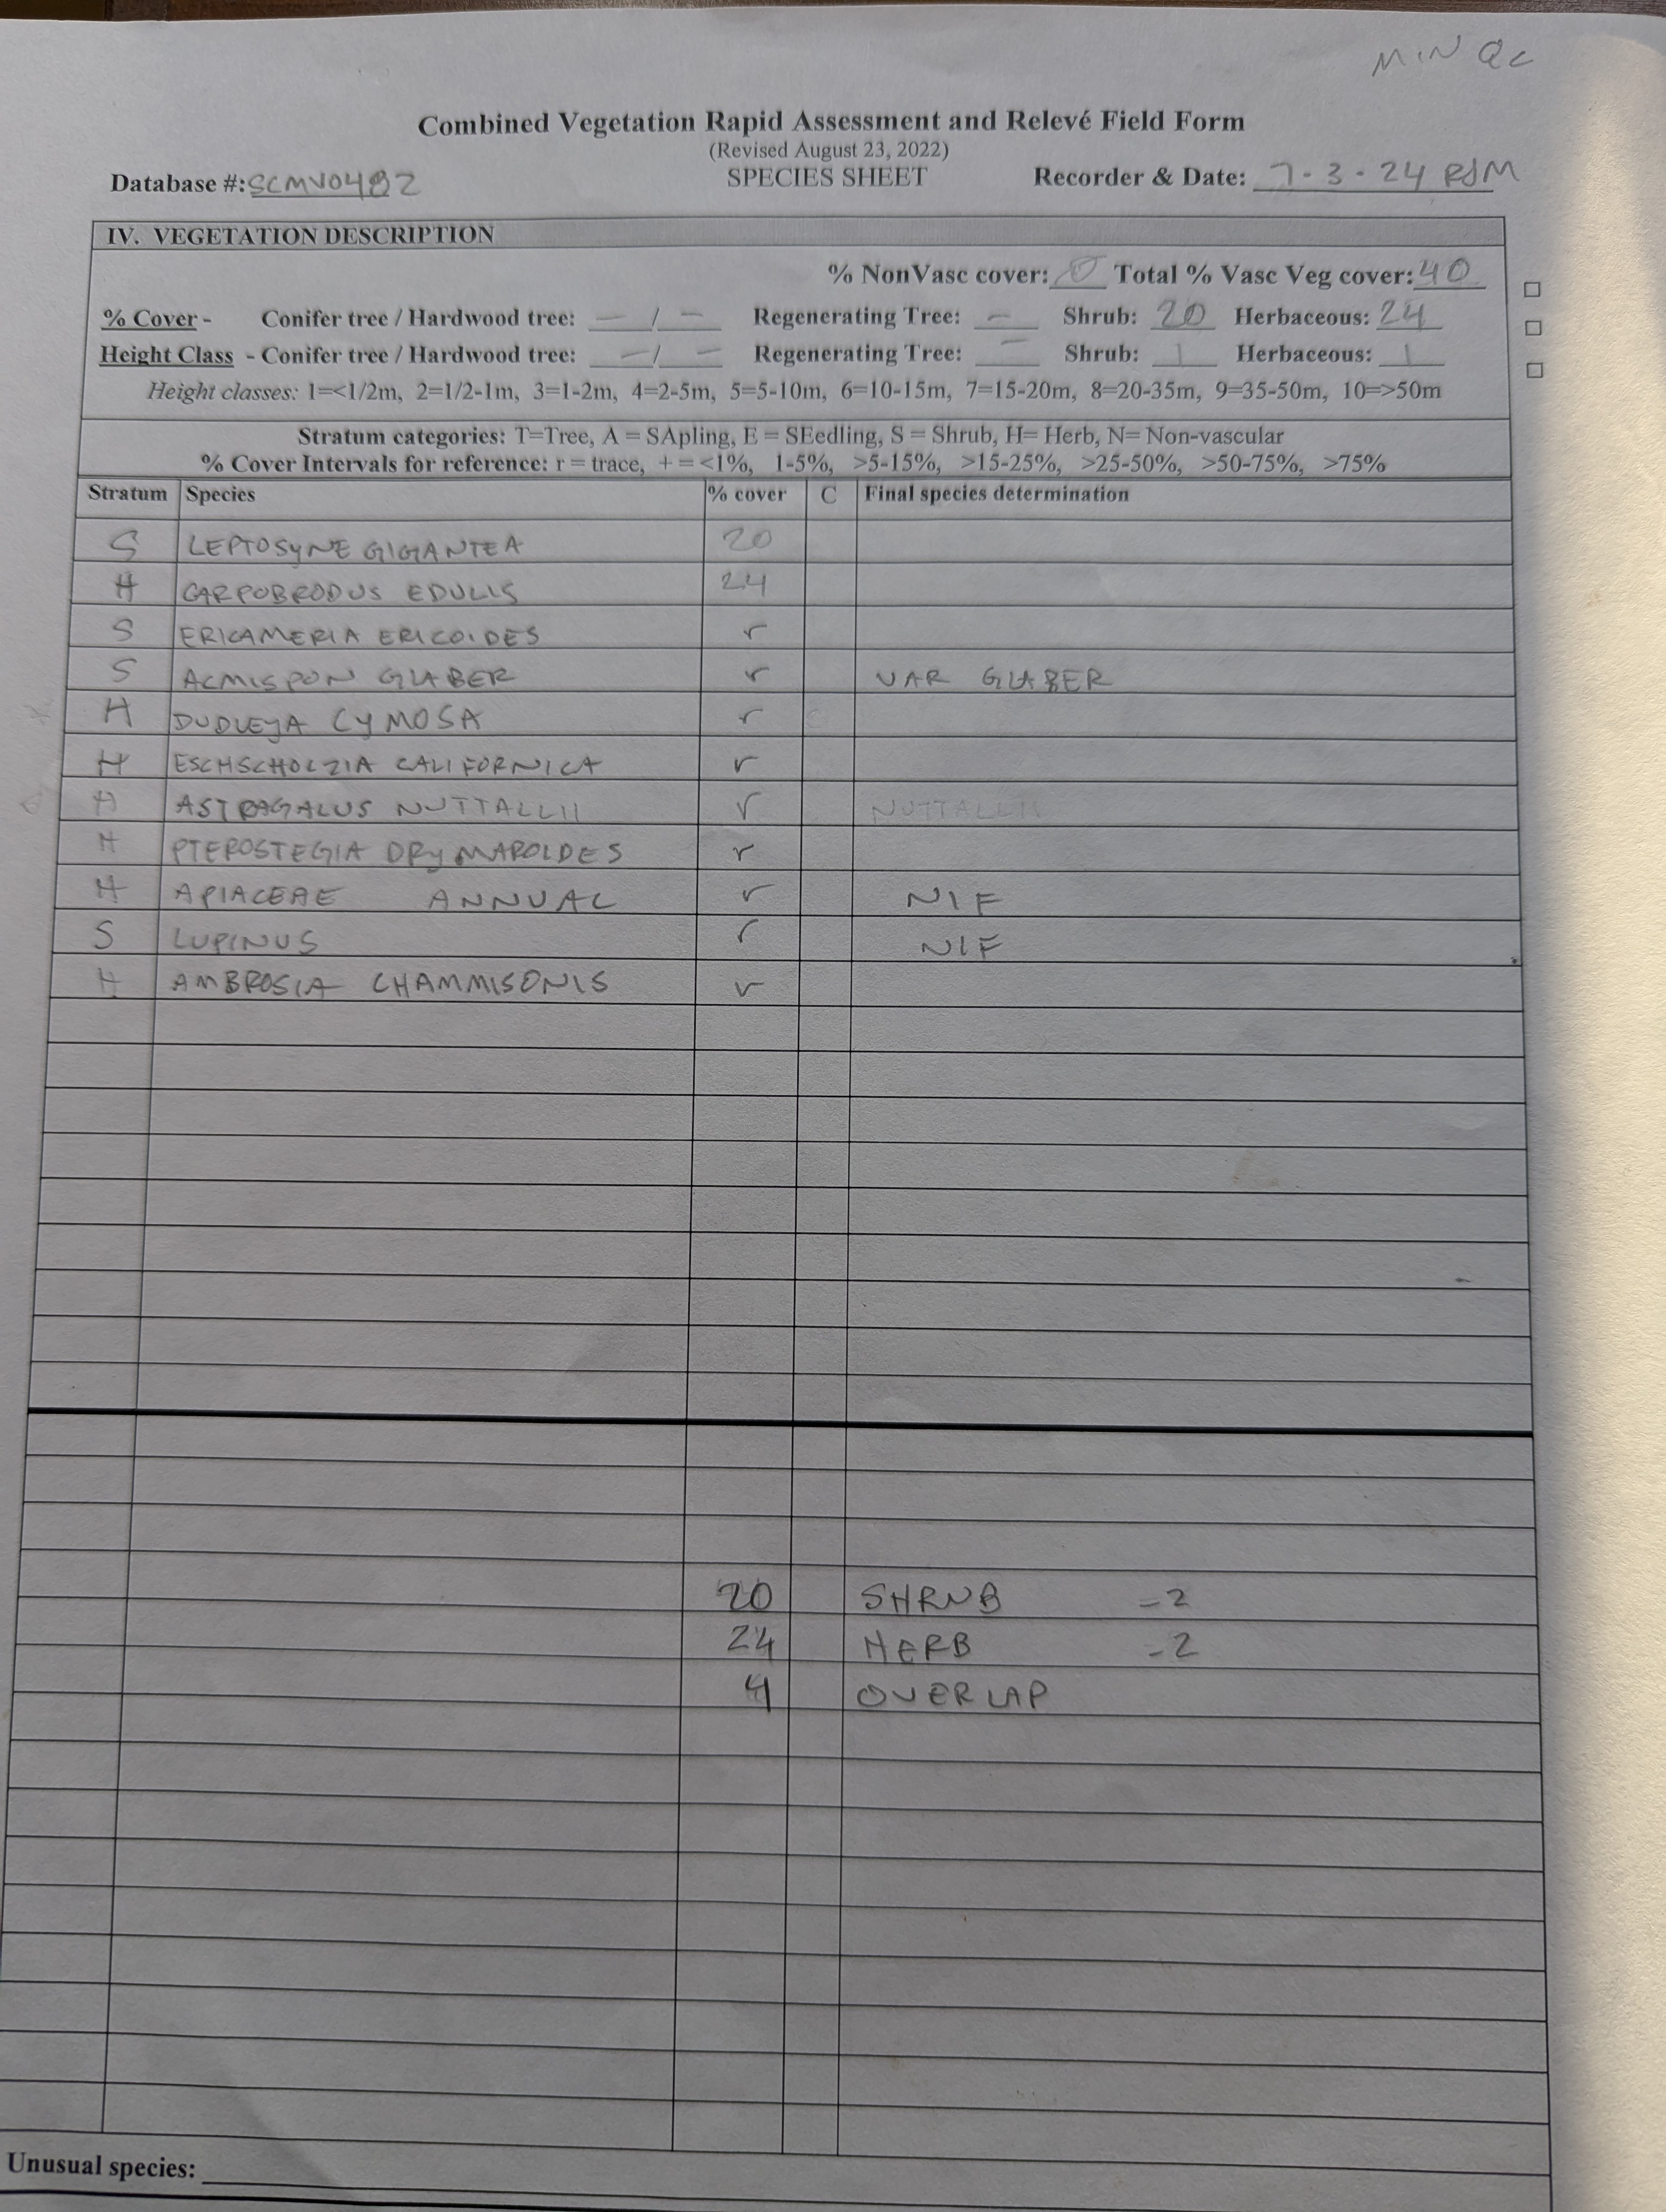 MIN QC
Combined Vegetation Rapid Assessment and Relevé Field Form
(Revised August 23, 2022)
Database #: SCMV0482 SPECIES SHEET Recorder & Date: 7-3-24 RJM
IV. VEGETATION DESCRIPTION
% NonVasc cover: 0 Total % Vasc Veg cover: 40
% Cover - Conifer tree / Hardwood tree: — / — Regenerating Tree: — Shrub: 20 Herbaceous: 24
Height Class - Conifer tree / Hardwood tree: — / — Regenerating Tree: — Shrub: 1 Herbaceous: 1
Height classes: 1=<1/2m, 2=1/2-1m, 3=1-2m, 4=2-5m, 5=5-10m, 6=10-15m, 7=15-20m, 8=20-35m, 9=35-50m, 10=>50m
Stratum categories: T=Tree, A = SApling, E = SEedling, S = Shrub, H= Herb, N= Non-vascular
% Cover Intervals for reference: r = trace, + = <1%, 1-5%, >5-15%, >15-25%, >25-50%, >50-75%, >75%
Stratum Species % cover C Final species determination
S LEPTOSYNE GIGANTEA 20
H CARPOBRODUS EDULIS 24
S ERICAMERIA ERICOIDES r
S ACMISPON GLABER r VAR GLABER
H DUDLEYA CYMOSA r C
H ESCHSCHOLZIA CALIFORNICA r
H ASTRAGALUS NUTTALLII r NUTTALLII
H PTEROSTEGIA DRYMAROIDES r
H APIACEAE ANNUAL r NIF
S LUPINUS r NIF
H AMBROSIA CHAMMISONIS r
20 SHRUB -2
24 HERB -2
4 OVERLAP
Unusual species: